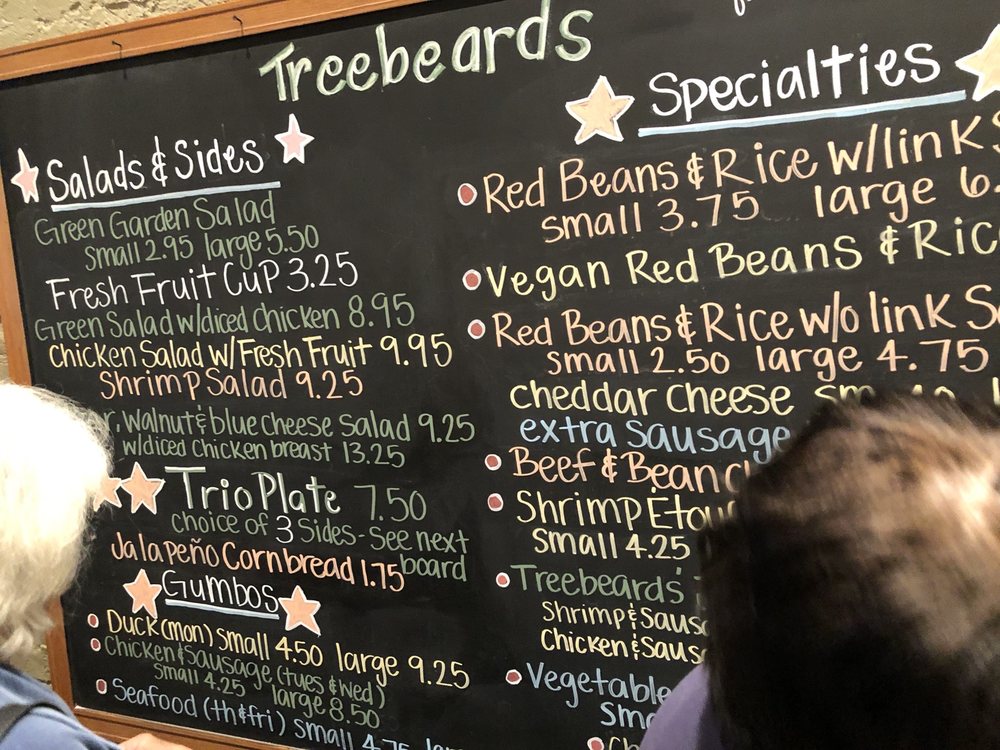 Treebeards
Salads & Sides
Green Garden Salad
small 2.95 large 5.50
Fresh Fruit Cup 3.25
Green Salad w/diced chicken 8.95
Chicken Salad w/Fresh Fruit 9.95
Shrimp Salad 9.25
walnut & blue cheese Salad 9.25
w/diced Chicken breast 13.25
Trio Plate 7.50
choice of 3 Sides - See next
board
Jalapeño Cornbread 1.75
Gumbos
Duck (mon) small 4.50 large 9.25
Chicken & Sausage (tues & wed)
small 4.25 large 8.50
Seafood (th & fri) small 4.75
Specialties
Red Beans & Rice w/link
small 3.75 large 6.
Vegan Red Beans & Ric
Red Beans & Rice w/o link S
small 2.50 large 4.75
cheddar cheese
extra sausage
Beef & Bean
Shrimp Étou
small 4.25
Treebeards'
Shrimp & Saus
Chicken & Saus
Vegetable
sm
Ch